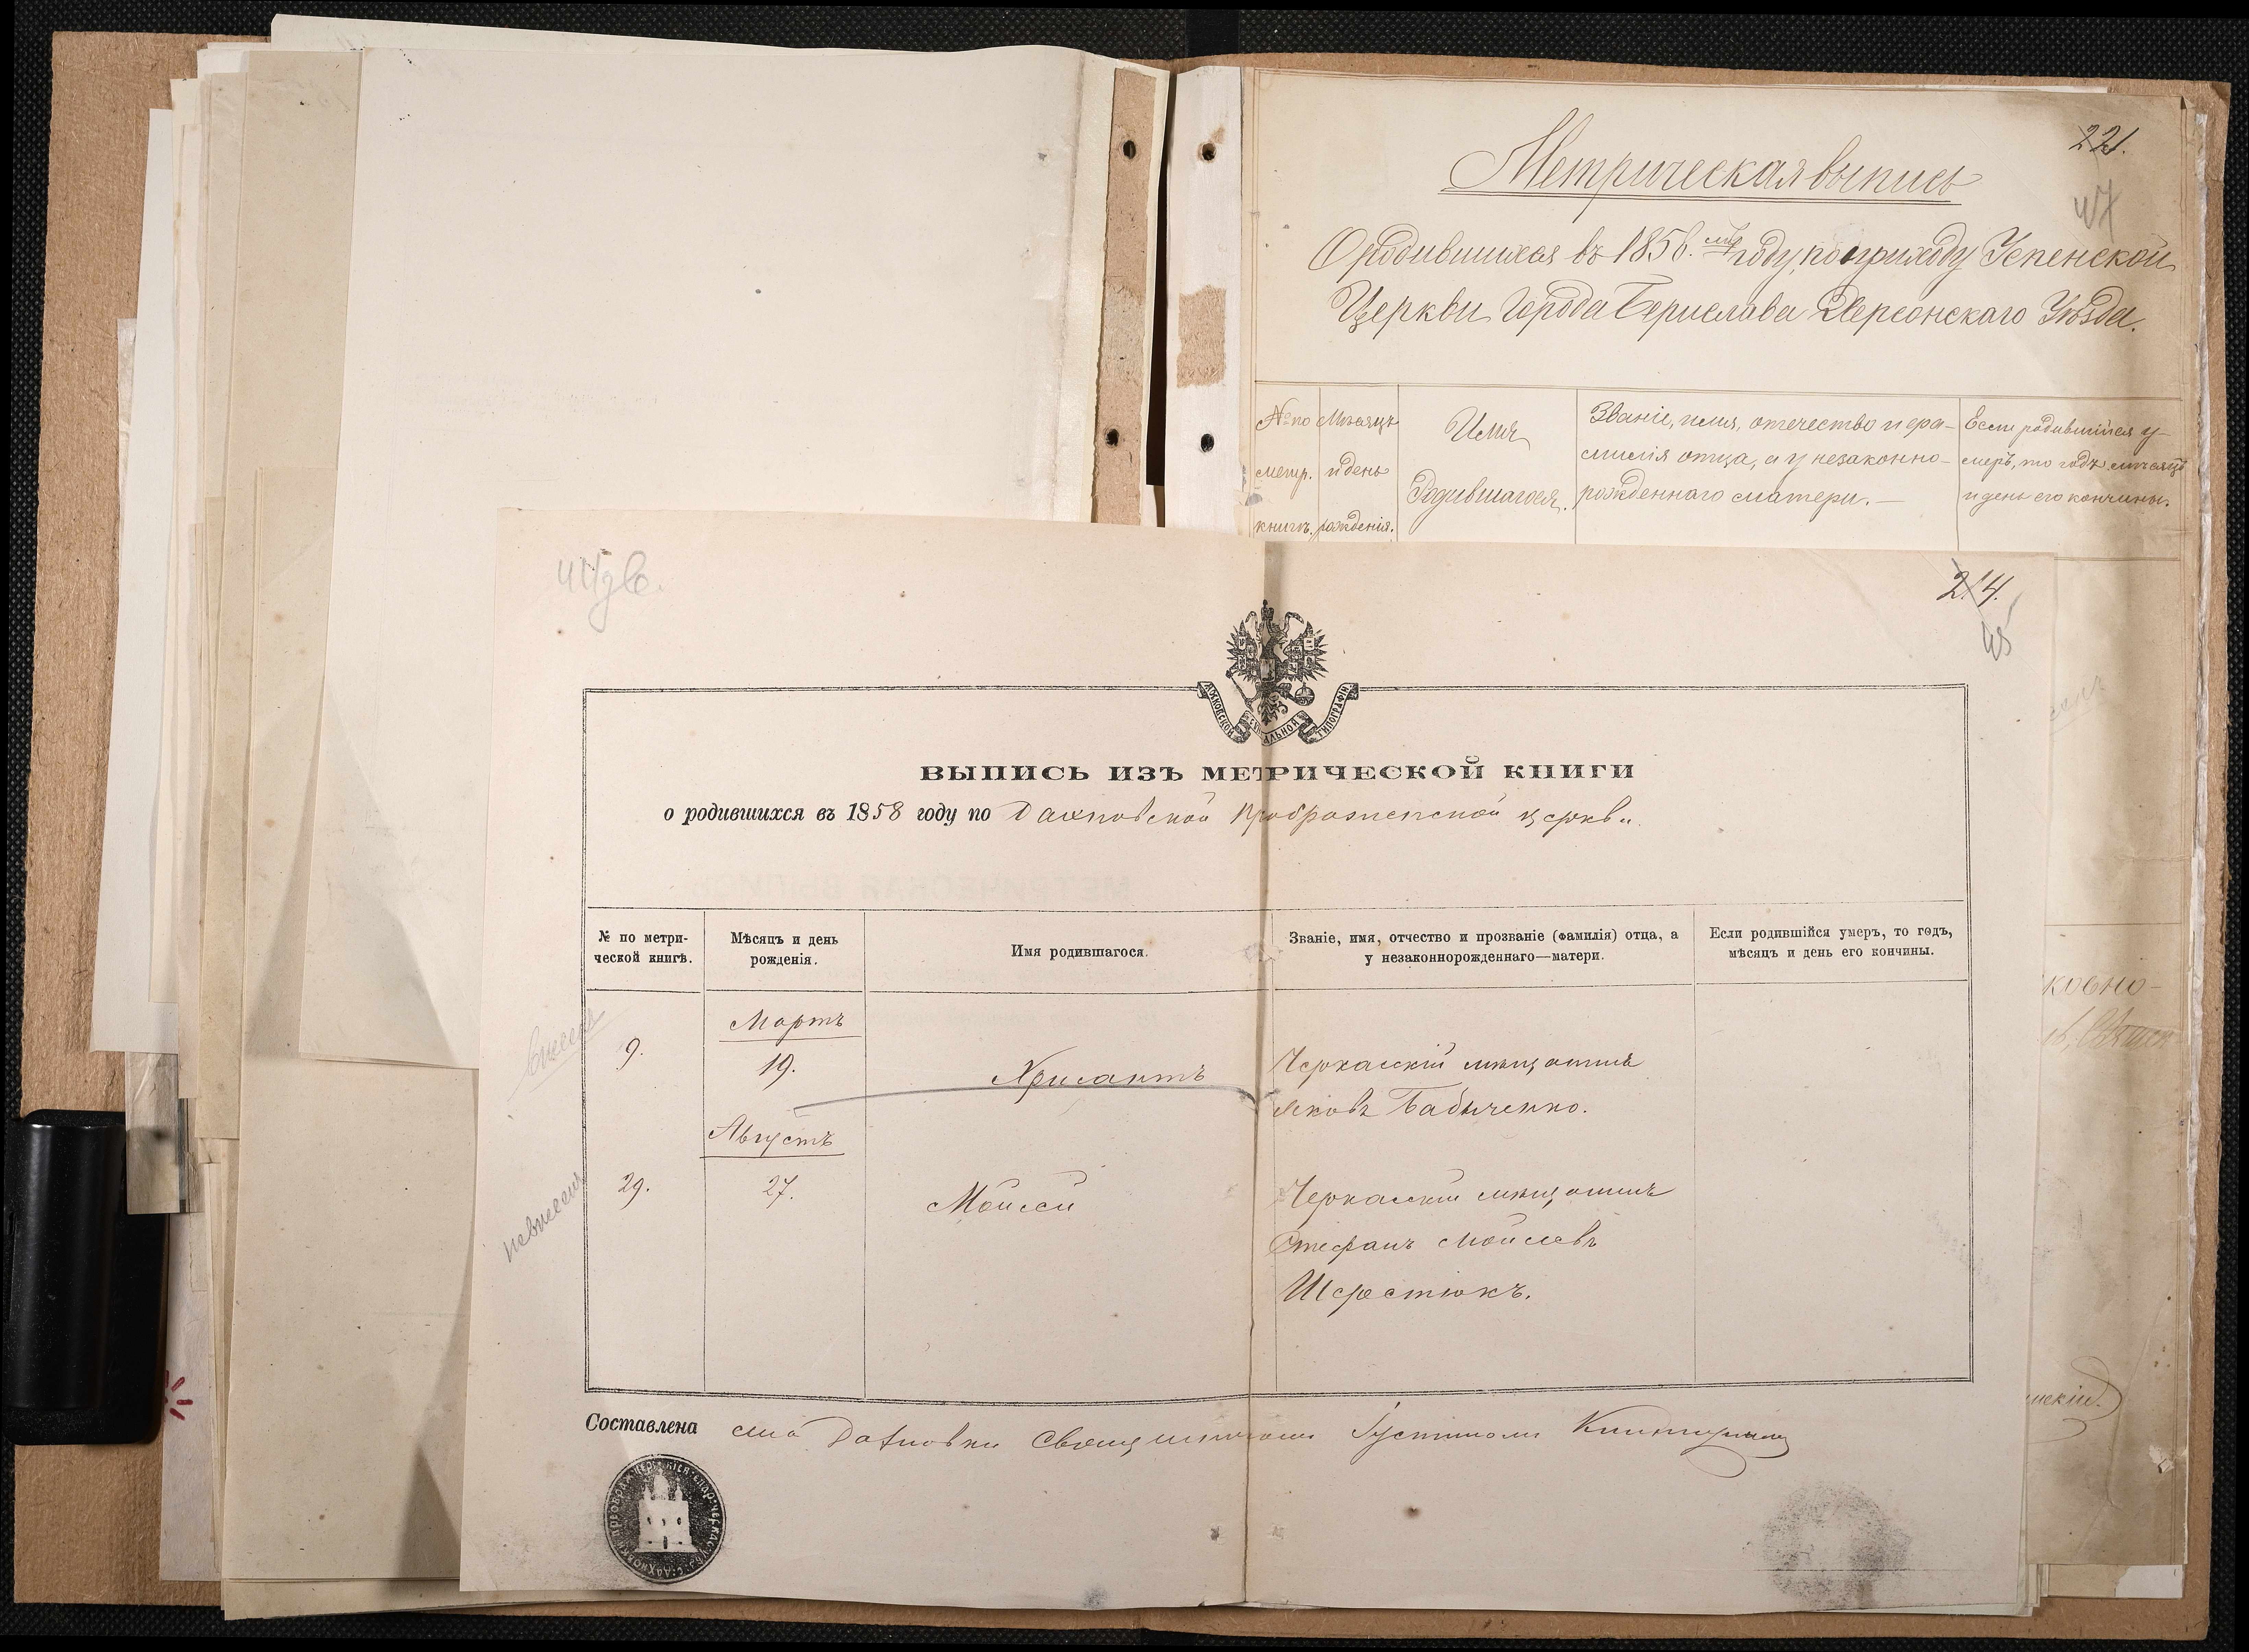 221.
47
Метрическая выпись
О родившихся въ 1858.мъ году, по приходу Успенской
Церкви города Берислава Херсонскаго Уѣзда.
№ по метр. книгѣ.
Мѣсяцъ и день рожденія.
Имя Родившагося.
Званіе, имя, отечество и фа-
милія отца, а у незаконно-
рожденнаго матери. —
Если родившійся у-
меръ, то годъ мѣсяцъ
и день его кончины.
214.
45
ВЫПИСЬ ИЗЪ МЕТРИЧЕСКОЙ КНИГИ
о родившихся въ 1858 году по Дахновской Преображенской церкви.
№ по метри-
ческой книгѣ.
Мѣсяцъ и день
рожденія.
Имя родившагося.
Званіе, имя, отчество и прозваніе (фамилія) отца, а
у незаконнорожденнаго—матери.
Если родившійся умеръ, то годъ,
мѣсяцъ и день его кончины.
внесенъ
Мартъ
9.
19.
Хрисантъ
Черкасскій мѣщанинъ
Яковъ Бабиченко.
Августъ
невнесенъ
29.
27.
Моисей
Черкасскій мѣщанинъ
Стефанъ Моисеевъ
Шерстюкъ.
Составлена села Дахновки Священникомъ Іустиномъ